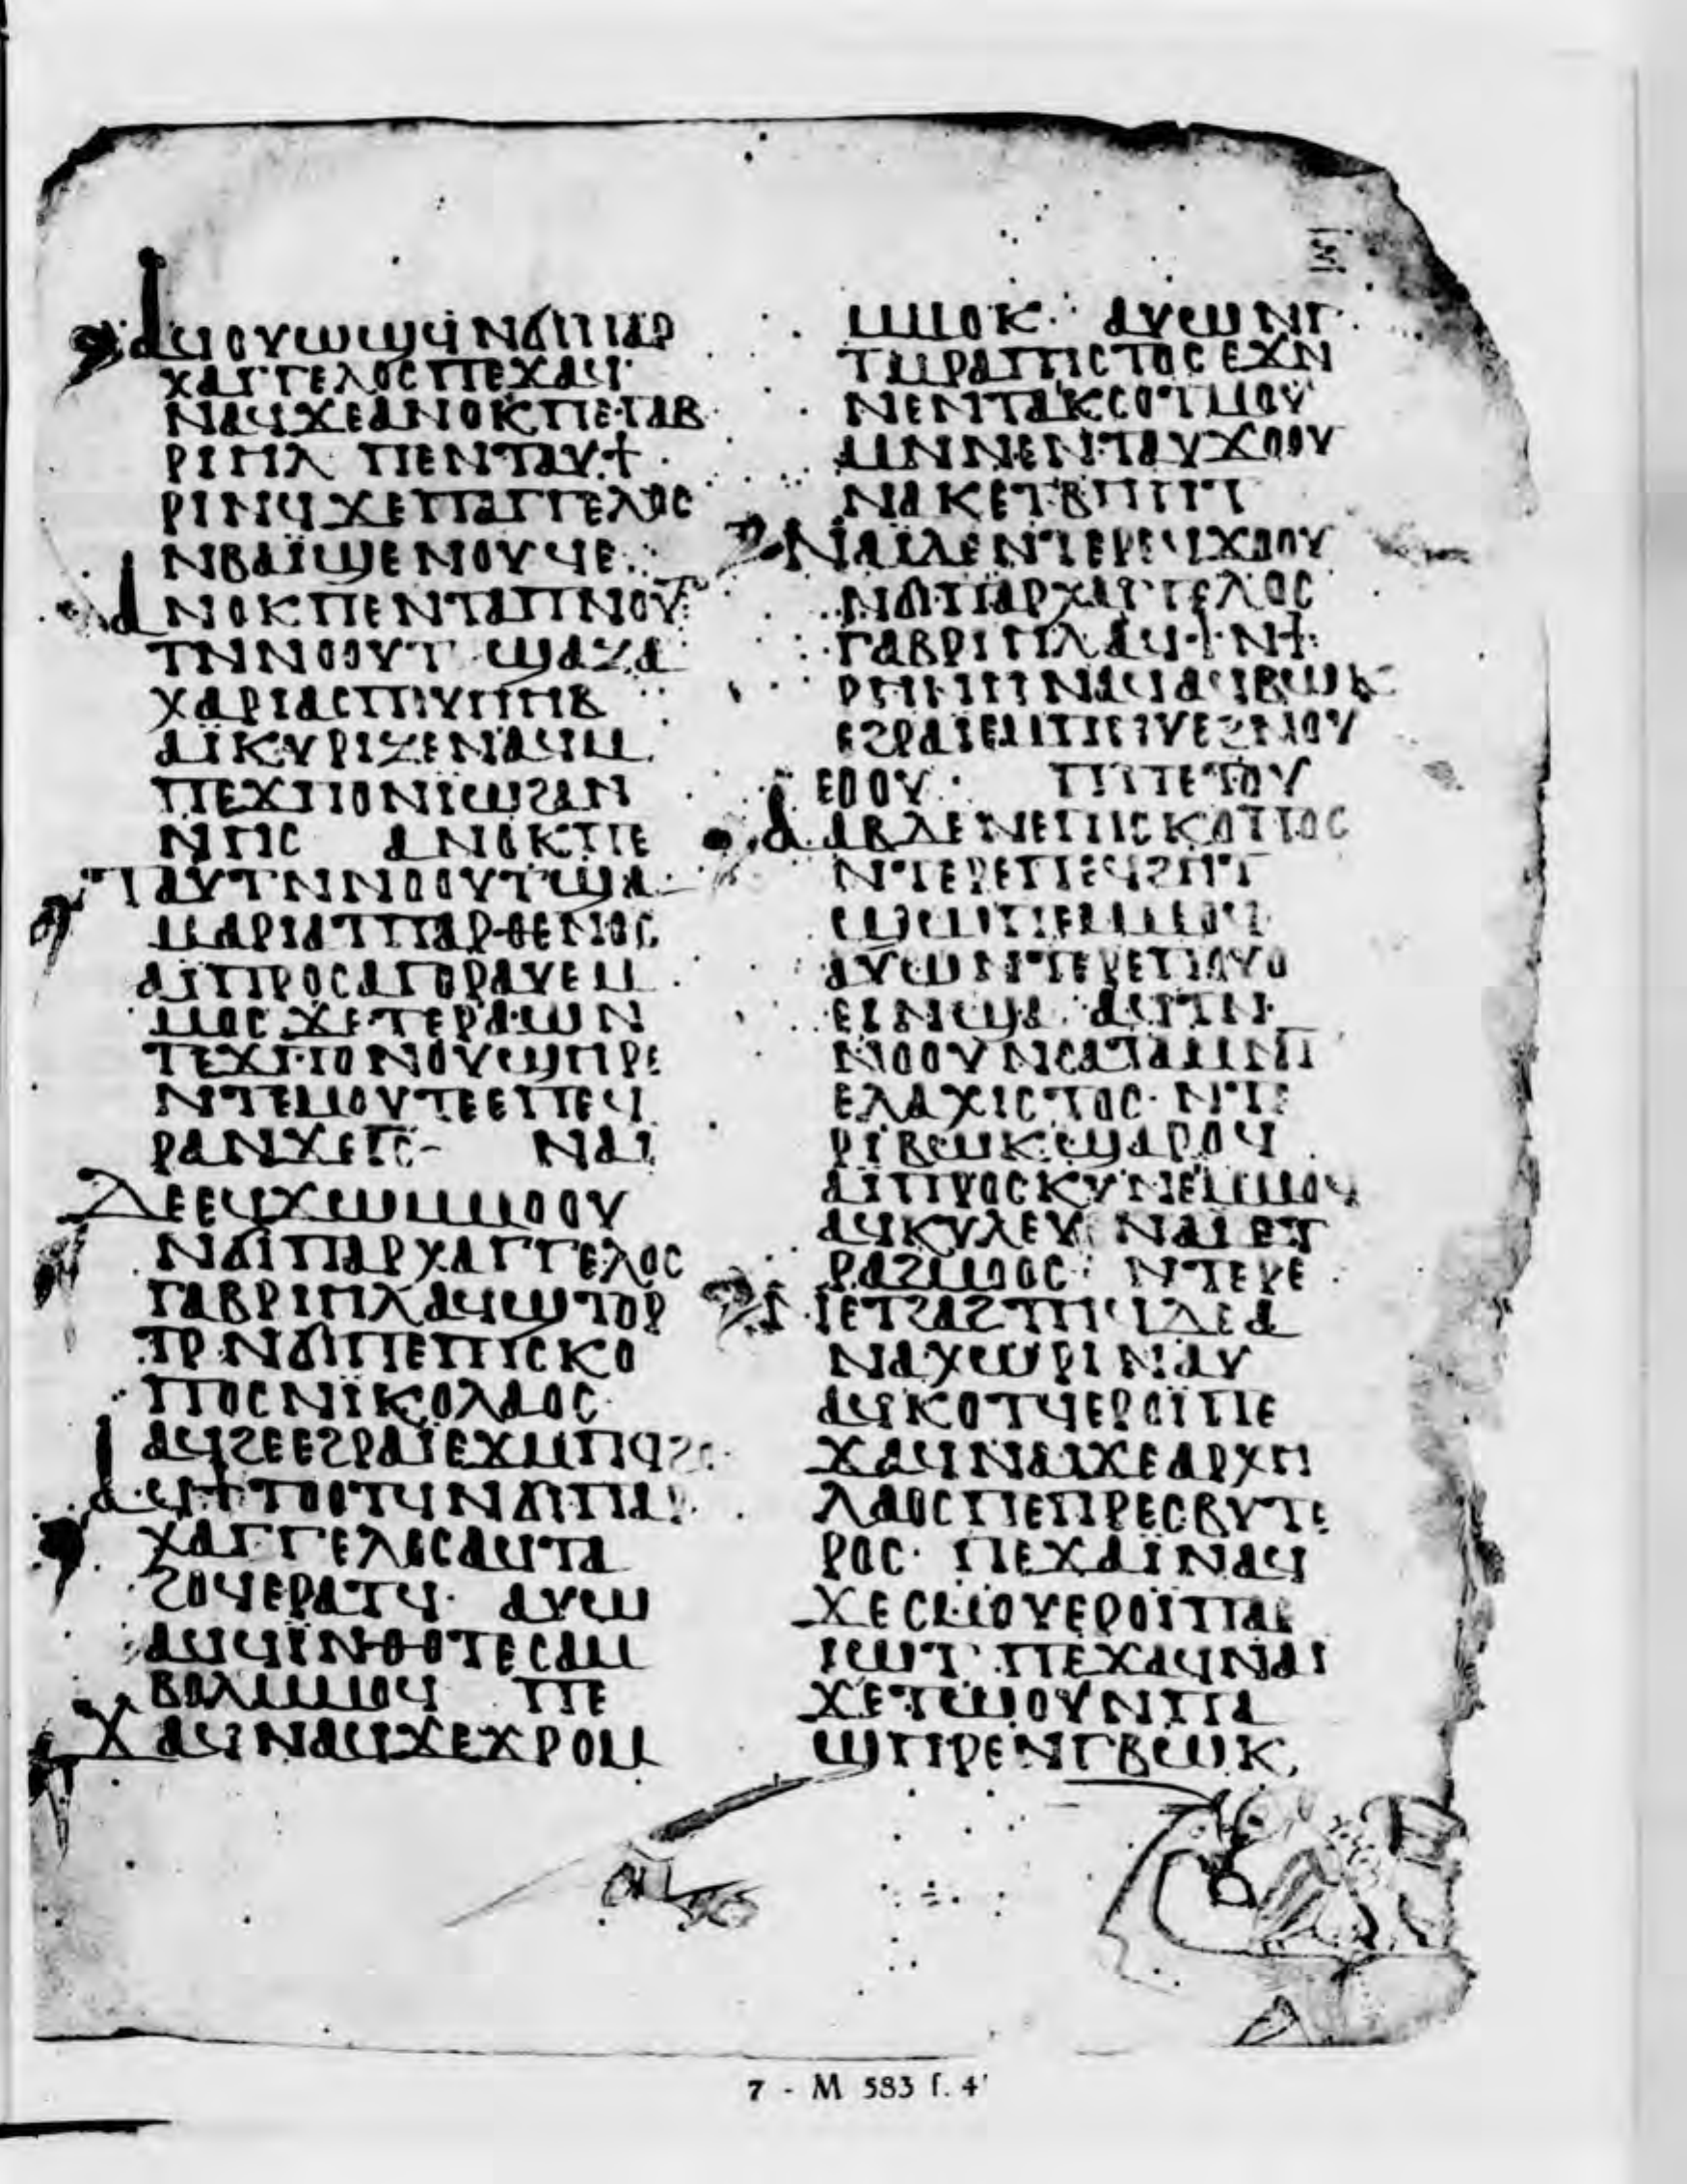 ⲁϥⲟⲩⲱϣϥⲛϭⲓⲡⲁⲣ
ⲭⲁⲅⲅⲉⲗⲟⲥⲡⲉϫⲁϥ
ⲛⲁϥϫⲉⲁⲛⲟⲕⲡⲉⲅⲁⲃ
ⲣⲓⲏⲗ ⲡⲉⲛⲧⲁⲩϯ
ⲣⲓⲛϥϫⲉⲡⲁⲅⲅⲉⲗⲟⲥ
ⲛⲃⲁⲓ̈ϣⲉⲛⲟⲩϥⲉ
ⲁⲛⲟⲕⲡⲉⲛⲧⲁⲡⲛⲟⲩ
ⲧⲛⲛⲟⲟⲩⲧ ϣⲁⲍⲁ
ⲭⲁⲣⲓⲁⲥⲡⲟⲩⲏⲏⲃ
ⲁⲓ̈ⲕⲩⲣⲓⲍⲉⲛⲁϥⲙ
ⲡⲉϫⲡⲟⲛⲓ̈ⲱϩⲁⲛ
ⲛⲏⲥ ⲁⲛⲟⲕⲡⲉ
ⲛⲧⲁⲩⲧⲛⲛⲟⲟⲩⲧϣⲁ
ⲙⲁⲣⲓⲁⲧⲡⲁⲣⲑⲉⲛⲟⲥ
ⲁⲓ̈ⲡⲣⲟⲥⲁⲅⲟⲣⲁⲩⲉⲙ
ⲙⲟⲥϫⲉⲧⲉⲣⲁⲱⲛ
ⲧⲉϫⲡⲟⲛⲟⲩϣⲏⲣⲉ
ⲛⲧⲉⲙⲟⲩⲧⲉⲉⲡⲉϥ
ⲣⲁⲛϫⲉⲓⲥ ⲛⲁⲓ
ⲇⲉⲉϥϫⲱⲙⲙⲟⲟⲩ
ⲛϭⲓⲡⲁⲣⲭⲁⲅⲅⲉⲗⲟⲥ
ⲅⲁⲃⲣⲓⲏⲗⲁϥϣⲧⲟⲣ
ⲧⲣⲛϭⲓⲡⲉⲡⲓⲥⲕⲟ
ⲡⲟⲥⲛⲓ̈ⲕⲟⲗⲁⲟⲥ
ⲁϥϩⲉⲉϩⲣⲁⲓ̈ⲉϫⲙⲡϥϩⲟ
ⲁϥϯⲧⲟⲟⲧϥⲛϭⲓⲡⲁⲣ
ⲭⲁⲅⲅⲉⲗⲟⲥⲁϥⲧⲁ
ϩⲟϥⲉⲣⲁⲧϥ ⲁⲩⲱ
ⲁϥϥⲓⲛⲑⲟⲧⲉⲥⲁⲙ
ⲃⲟⲗⲙⲙⲟϥ ⲡⲉ
ϫⲁϥⲛⲁϥϫⲉϫⲣⲟⲙ
ⲙⲙⲟⲕ ⲁⲩⲱⲛⲅ
ⲧⲙⲣⲁⲡⲓⲥⲧⲟⲥⲉϫⲛ
ⲛⲉⲛⲧⲁⲕⲥⲟⲧⲙⲟⲩ
ⲙⲛⲛⲉⲛⲧⲁⲩϫⲟⲟⲩ
ⲛⲁⲕⲉⲧⲃⲏⲏⲧ
ⲛⲁⲓ̈ⲇⲉⲛⲧⲉⲣⲉϥϫⲟⲟⲩ
ⲛϭⲓⲡⲁⲣⲭⲁⲅⲅⲉⲗⲟⲥ
ⲅⲁⲃⲣⲓⲏⲗⲁϥϯⲛϯ
ⲣⲏⲛⲏⲛⲁϥⲁϥⲃⲱⲕ
ⲉϩⲣⲁⲓ̈ⲉⲙⲡⲏⲩⲉϩⲛⲟⲩ
ⲉⲟⲟⲩ ⲡⲡⲉⲧⲟⲩ
ⲁⲁⲃⲇⲉⲛⲉⲡⲓⲥⲕⲟⲡⲟⲥ
ⲛⲧⲉⲣⲉⲡⲉϥϩⲏⲧ
ϣⲱⲡⲉⲙⲙⲟϥ
ⲁⲩⲱⲛⲧⲉⲣⲉⲡⲟⲩⲟ
ⲉⲓⲛϣⲁ ⲁϥⲧⲛ
ⲛⲟⲟⲩⲛⲥⲁⲧⲁⲙⲛⲧ
ⲉⲗⲁⲭⲓⲥⲧⲟⲥ ⲛⲧⲉ
ⲣⲓⲃⲱⲕϣⲁⲣⲟϥ
ⲁⲓ̈ⲡⲣⲟⲥⲕⲩⲛⲉⲓⲙⲙⲟϥ
ⲁϥⲕⲩⲗⲉⲩⲛⲁⲓⲉⲧ
ⲣⲁϩⲙⲟⲟⲥ ⲛⲧⲉⲣⲉ
ⲛⲉⲧϩⲁϩⲧⲏϥⲇⲉⲁ
ⲛⲁⲭⲱⲣⲓⲛⲁⲩ
ⲁϥⲕⲟⲧϥⲉⲣⲟⲓ̈ⲡⲉ
ϫⲁϥⲛⲁⲓϫⲉⲁⲣⲭⲏ
ⲗⲁⲟⲥⲡⲉⲡⲣⲉⲥⲃⲩⲧⲉ
ⲣⲟⲥ ⲡⲉϫⲁⲓ̈ⲛⲁϥ
ϫⲉⲥⲙⲟⲩⲉⲣⲟⲓ̈ⲡⲁⲉ
ⲓⲱⲧ ⲡⲉϫⲁϥⲛⲁⲓ
ϫⲉⲧⲱⲟⲩⲛⲡⲁ
ϣⲏⲣⲉⲛⲅⲃⲱⲕ
7 - M 583 f. 4ʳ